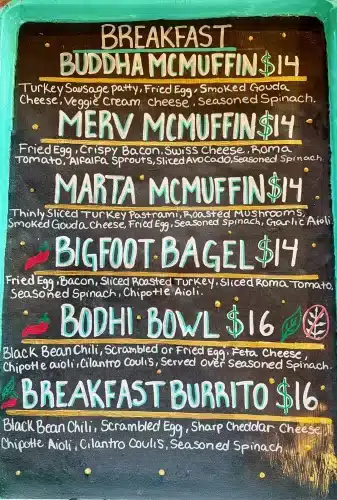 BREAKFAST
BUDDHA MCMUFFIN $14
Turkey Sausage patty, Fried Egg, Smoked Gouda
Cheese, Veggie Cream cheese, Seasoned Spinach.
MERV MCMUFFIN $14
Fried Egg, Crispy Bacon, Swiss Cheese, Roma
Tomato, Alfalfa Sprouts, Sliced Avocado, Seasoned Spinach
MARTA MCMUFFIN $14
Thinly Sliced Turkey Pastrami, Roasted Mushrooms,
Smoked Gouda Cheese, Fried Egg, Seasoned Spinach, Garlic Aioli
BIGFOOT BAGEL $14
Fried Egg, Bacon, Sliced Roasted Turkey, Sliced Roma Tomato,
Seasoned Spinach, Chipotle Aioli.
BODHI BOWL $16
Black Bean Chili, Scrambled or Fried Egg, Feta Cheese,
Chipotle aioli, Cilantro Coulis, Served over Seasoned Spinach.
BREAKFAST BURRITO $16
Black Bean Chili, Scrambled Egg, Sharp Cheddar Cheese,
Chipotle Aioli, Cilantro Coulis, Seasoned Spinach